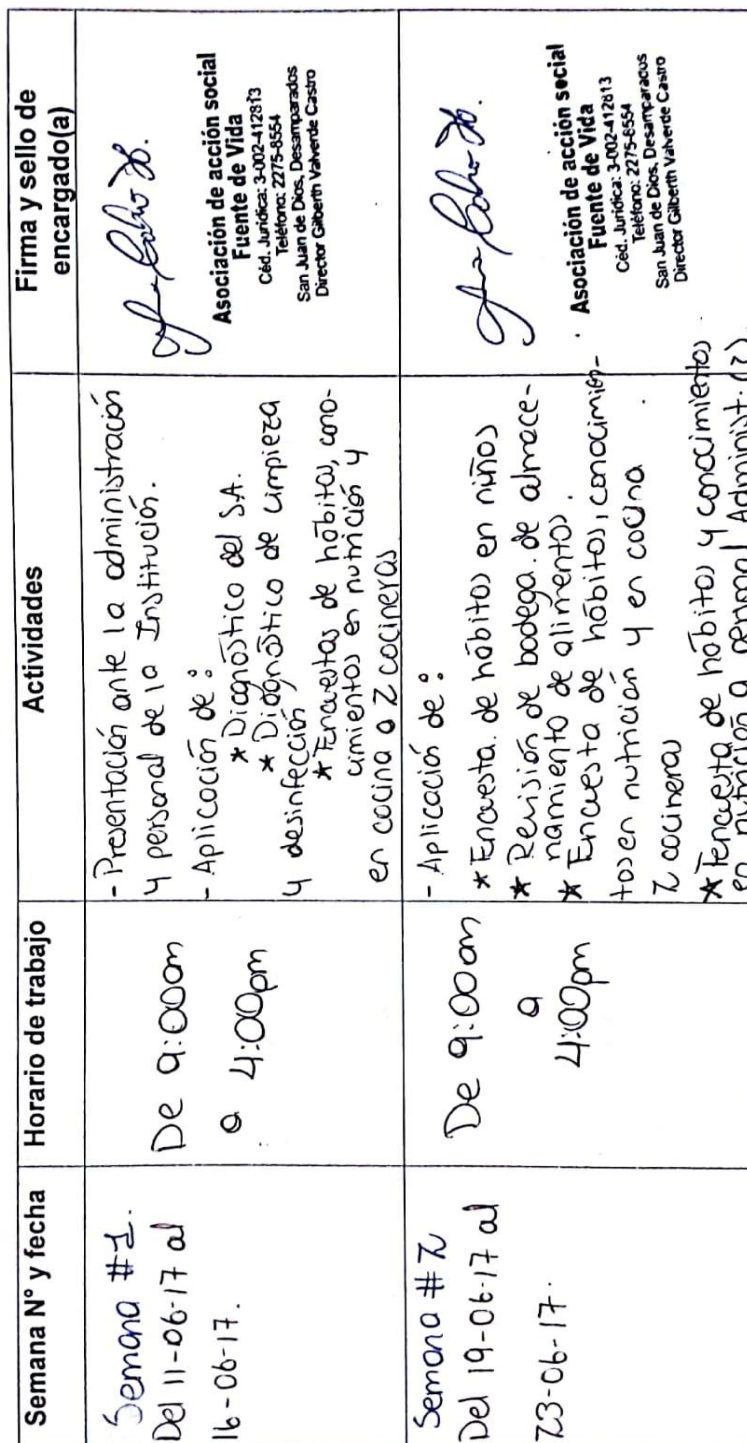 Semana N° y fecha
Horario de trabajo
Actividades
Firma y sello de
encargado(a)
Semana #1.
Del 11-06-17 al
16-06-17.
De 9:00am
a 4:00pm
- Presentación ante la administración
y personal de la Institución.
- Aplicación de:
* Diagnóstico del S.A.
* Diagnóstico de limpieza
y desinfección
* Encuestas de hábitos, cono-
cimientos en nutrición y
en cocina a 2 cocineras
Asociación de acción social
Fuente de Vida
Céd. Jurídica: 3-002-412813
Teléfono: 2275-6554
San Juan de Dios, Desamparados
Director Gilberth Valverde Castro
Semana #2
Del 19-06-17 al
23-06-17.
De 9:00am
a
4:00pm
- Aplicación de:
* Encuesta de hábitos en niños
* Revisión de bodega de almace-
namiento de alimentos.
* Encuesta de hábitos, conocimien-
tos en nutrición y en cocina
2 cocineras
* Encuesta de hábitos y conocimientos
en nutrición a personal Administ. (2)
Asociación de acción social
Fuente de Vida
Céd. Jurídica: 3-002-412813
Teléfono: 2275-6554
San Juan de Dios, Desamparados
Director Gilberth Valverde Castro